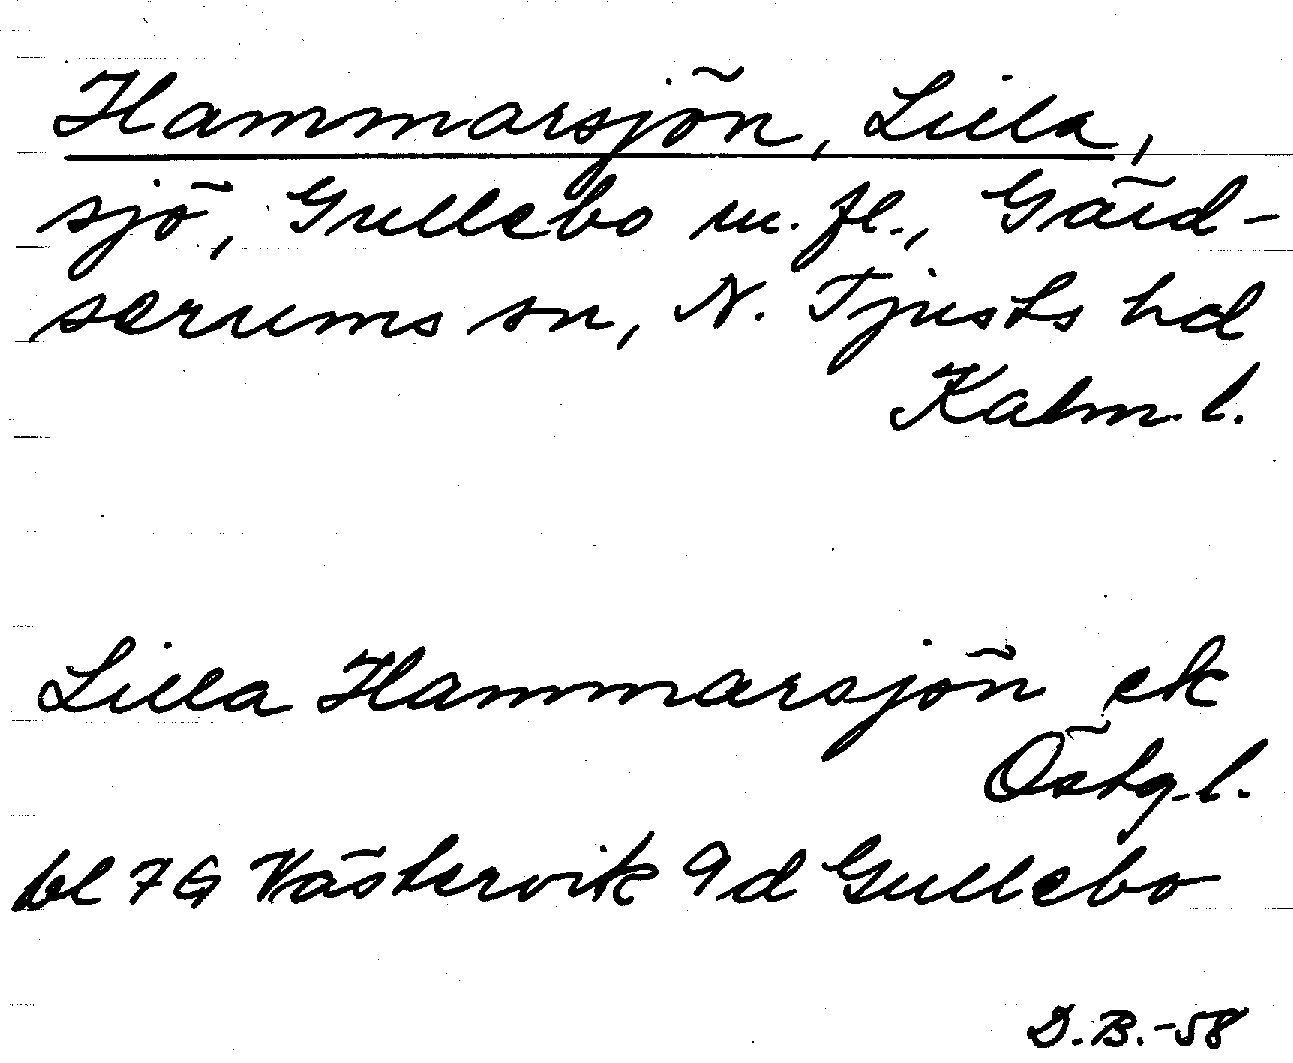 Hammarsjön, Lilla,
sjö, Gullebo m.fl., Gärd-
serums sn, N. Tjusts hd
Kalm. l.
Lilla Hammarsjön ek
Östg. l.
bl 7G Västervik 9d Gullebo
D.B.-58